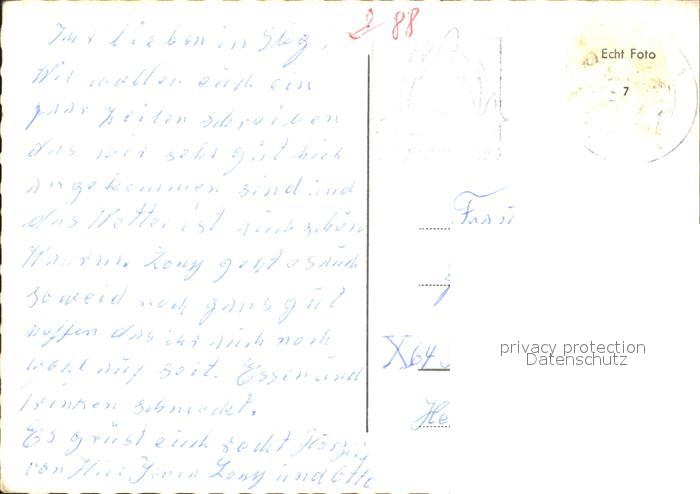 8 88
Echt Foto
7
Ihr lieben in
Wir wollen euch ein
paar Zeilen schreiben
das wir sehr gut hier
angekommen sind und
das Wetter ist auch schön
Waarm. Lony geht es auch
soweid noch gans gut
hoffen das ihr auch noch
wohl auf seit. Essen und
trinken schmeckt.
Es grüst euch recht Herzlig
von Hier Lony und Otto
Frau
X64
He
privacy protection
Datenschutz